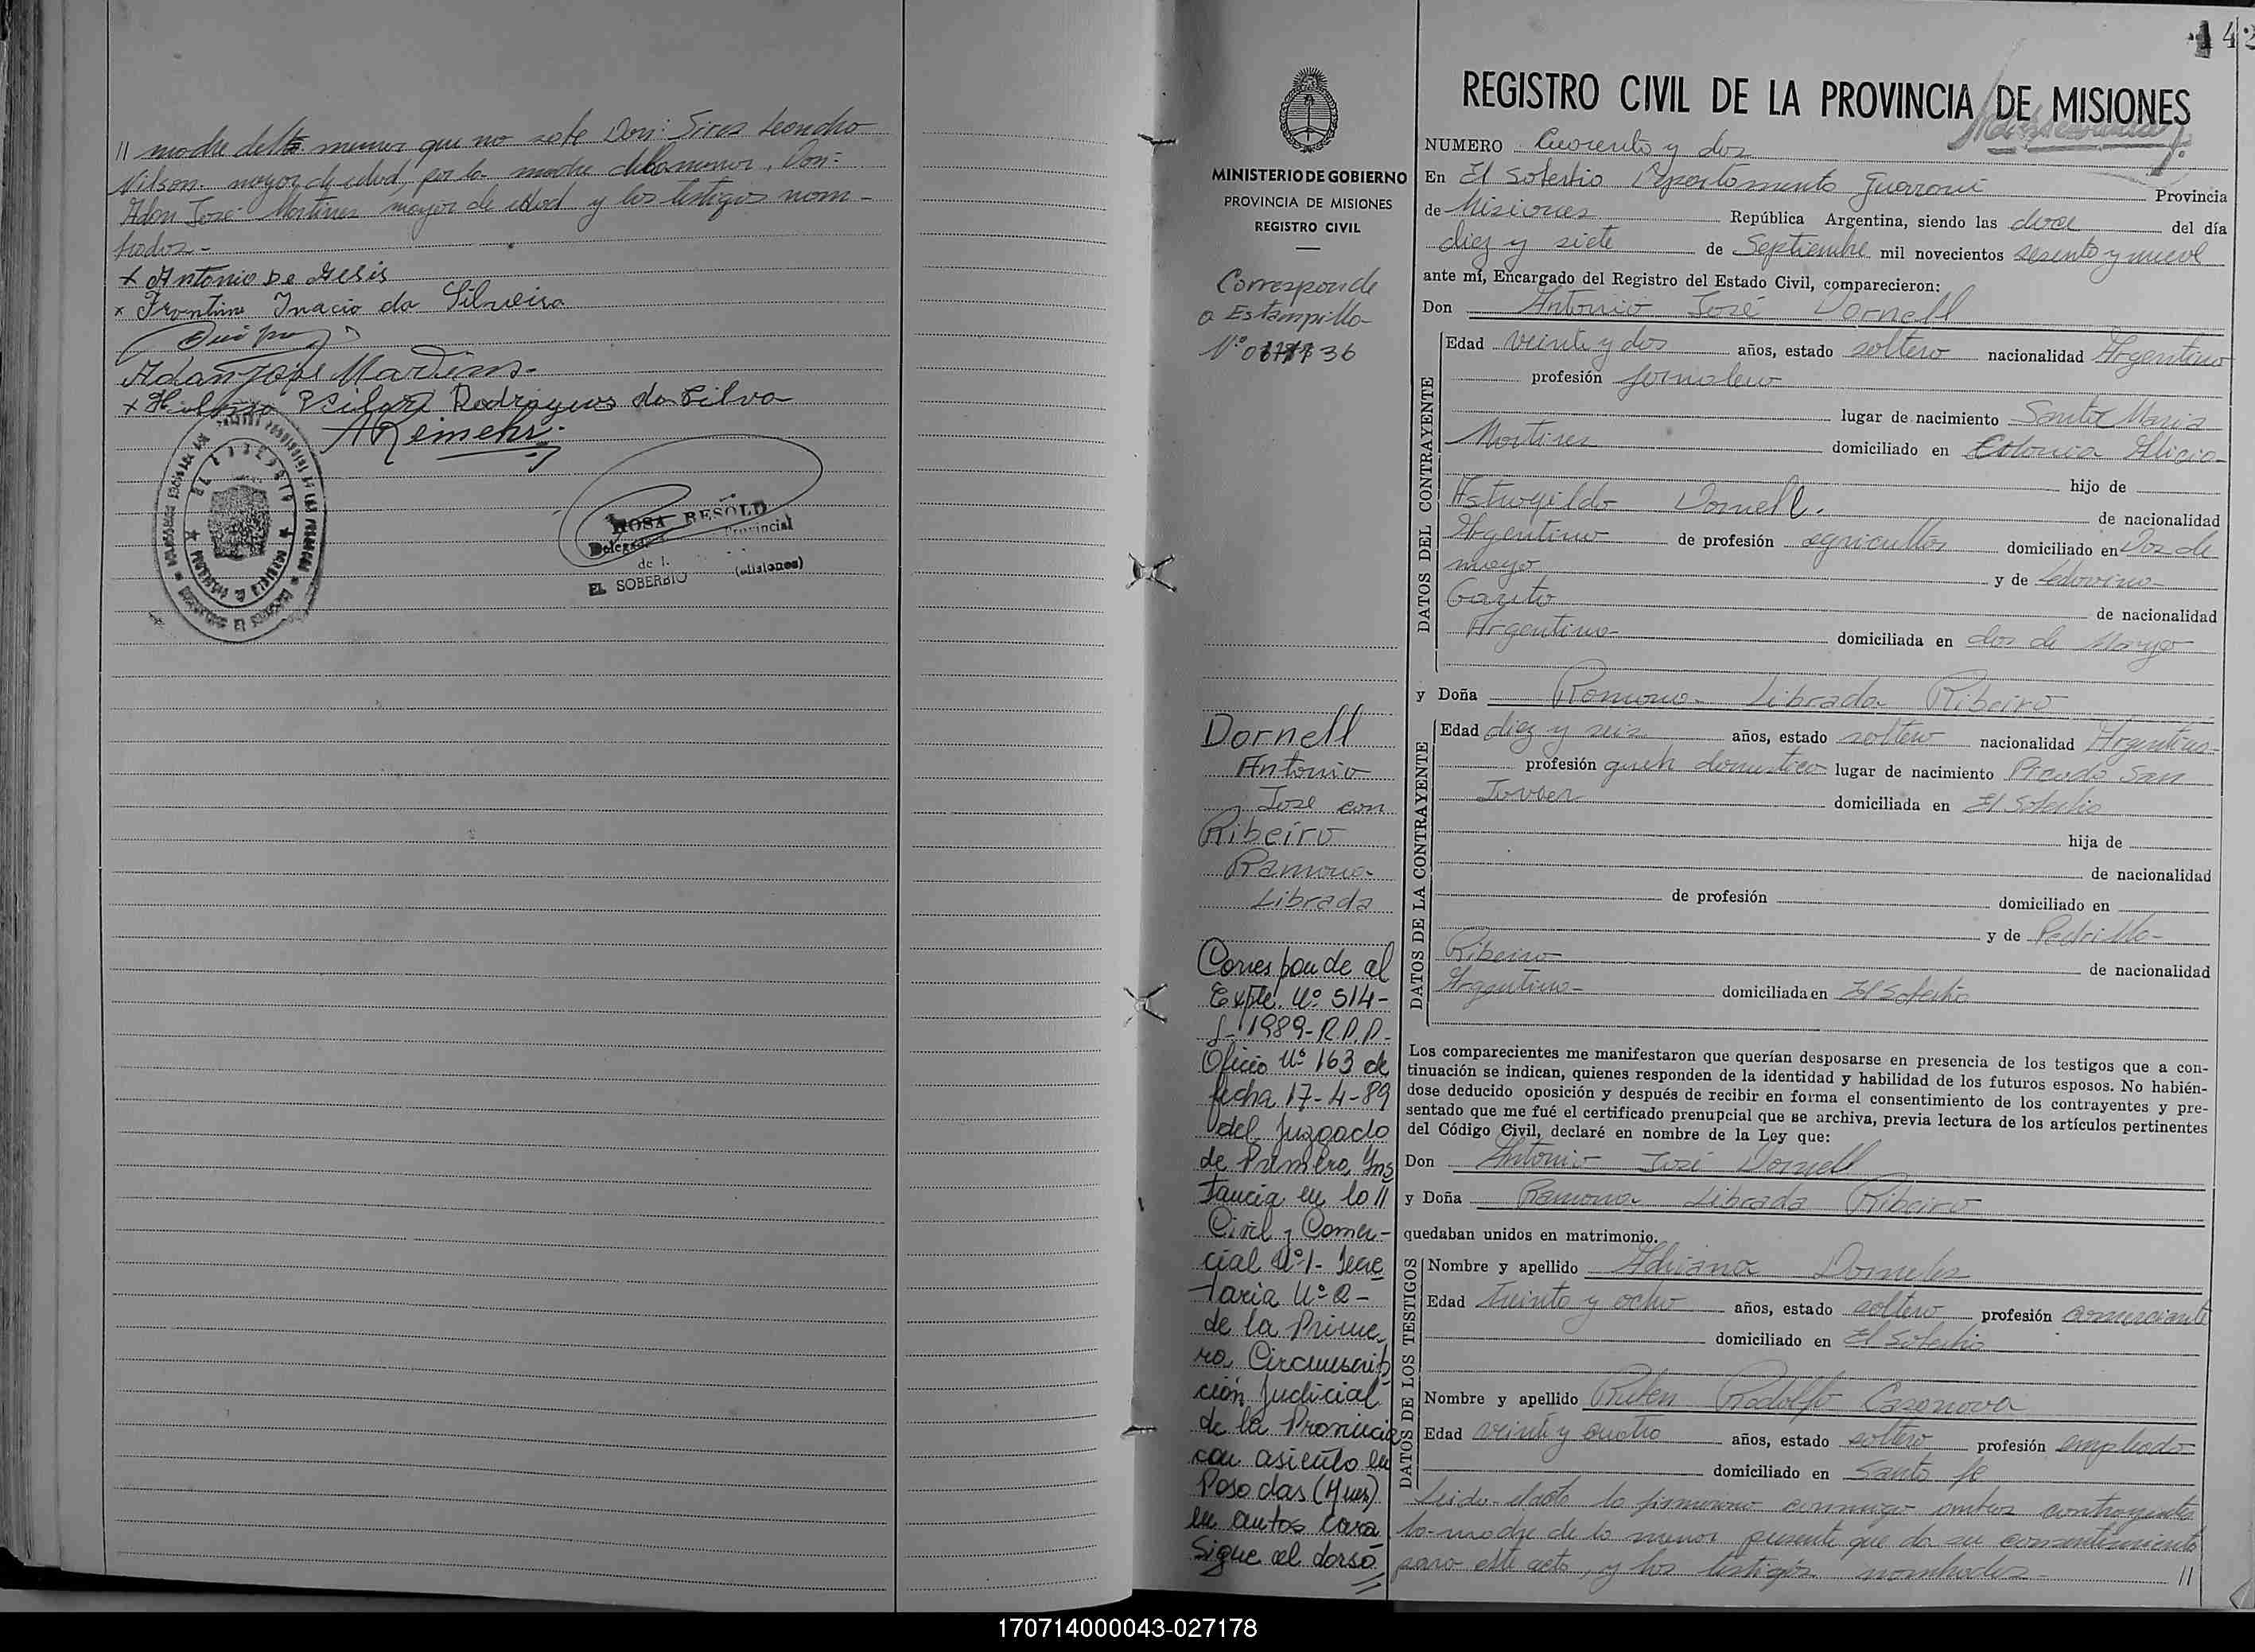 // madre del menor que no sabe Don: Sires Leoncho
Nilson. mayor de edad, por la madre de la menor, Don:
Adan José Martines mayor de edad y los testigos nom-
brados.-
x Antonio De Gesis
x Frontino Inacio da Silveira
Adan José Martins.
x Rodrigues da Silva
ROSA BESOLD
Delegada Provincial
EL SOBERBIO (Misiones)
42
REGISTRO CIVIL DE LA PROVINCIA DE MISIONES
MINISTERIO DE GOBIERNO
PROVINCIA DE MISIONES
REGISTRO CIVIL
Corresponde
a Estampilla
NUMERO Cuarenta y dos
En El Soberbio Departamento Guaraní Provincia
de Misiones República Argentina, siendo las doce del día
diez y siete de Septiembre mil novecientos sesenta y nueve
ante mí, Encargado del Registro del Estado Civil, comparecieron:
Don Antonio José Dornell
DATOS DEL CONTRAYENTE
Edad veinte y dos años, estado soltero nacionalidad Argentino
profesión jornalero
lugar de nacimiento Santa Maria
Martires domiciliado en Colonia Alicia
hijo de
Dornell. de nacionalidad
Argentino de profesión agricultor domiciliado en Dos de
mayo y de Ledovina
de nacionalidad
Argentina domiciliada en dos de Mayo
y Doña Ramona Librada Ribeiro
DATOS DE LA CONTRAYENTE
Edad diez y seis años, estado soltera nacionalidad Argentina
profesión queh domestico lugar de nacimiento Picada San
Javier domiciliada en El Soberbio
hija de
de nacionalidad
de profesión domiciliado en
y de Pedrilla
Ribeiro de nacionalidad
Argentina domiciliada en El Soberbio
Dornell
Antonio
José con
Ribeiro
Ramona
Librada
Corresponde al
Expte. Nº 514-
1989-R.P.P.-
Oficio Nº 163 de
fecha 17-4-89
del Juzgado
de Primera Ins
tancia en lo //
Civil y Comer-
cial Nº 1- Secre
taria Nº 2-
de la Prime
ra Circunscrip
ción Judicial
de la Provincia
con asiento en
Posadas (Mnes)
en autos cara
Sigue al dorso
//
Los comparecientes me manifestaron que querían desposarse en presencia de los testigos que a con-
tinuación se indican, quienes responden de la identidad y habilidad de los futuros esposos. No habién-
dose deducido oposición y después de recibir en forma el consentimiento de los contrayentes y pre-
sentado que me fué el certificado prenupcial que se archiva, previa lectura de los artículos pertinentes
del Código Civil, declaré en nombre de la Ley que:
Don Antonio José Dornell
y Doña Ramona Librada Ribeiro
quedaban unidos en matrimonio.
DATOS DE LOS TESTIGOS
Nombre y apellido Adriana Dorneles
Edad treinta y ocho años, estado soltera profesión comerciante
domiciliado en El Soberbio
DATOS DE LOS TESTIGOS
Nombre y apellido Ruben Rodolfo Casanova
Edad veinte y cuatro años, estado soltero profesión empleado
domiciliado en Santa fe
Leida el acta la firmaron conmigo ambos contrayentes
la madre de la menor presente que da su consentimiento
para este acto, y los testigos nombrados. //
170714000043-027178